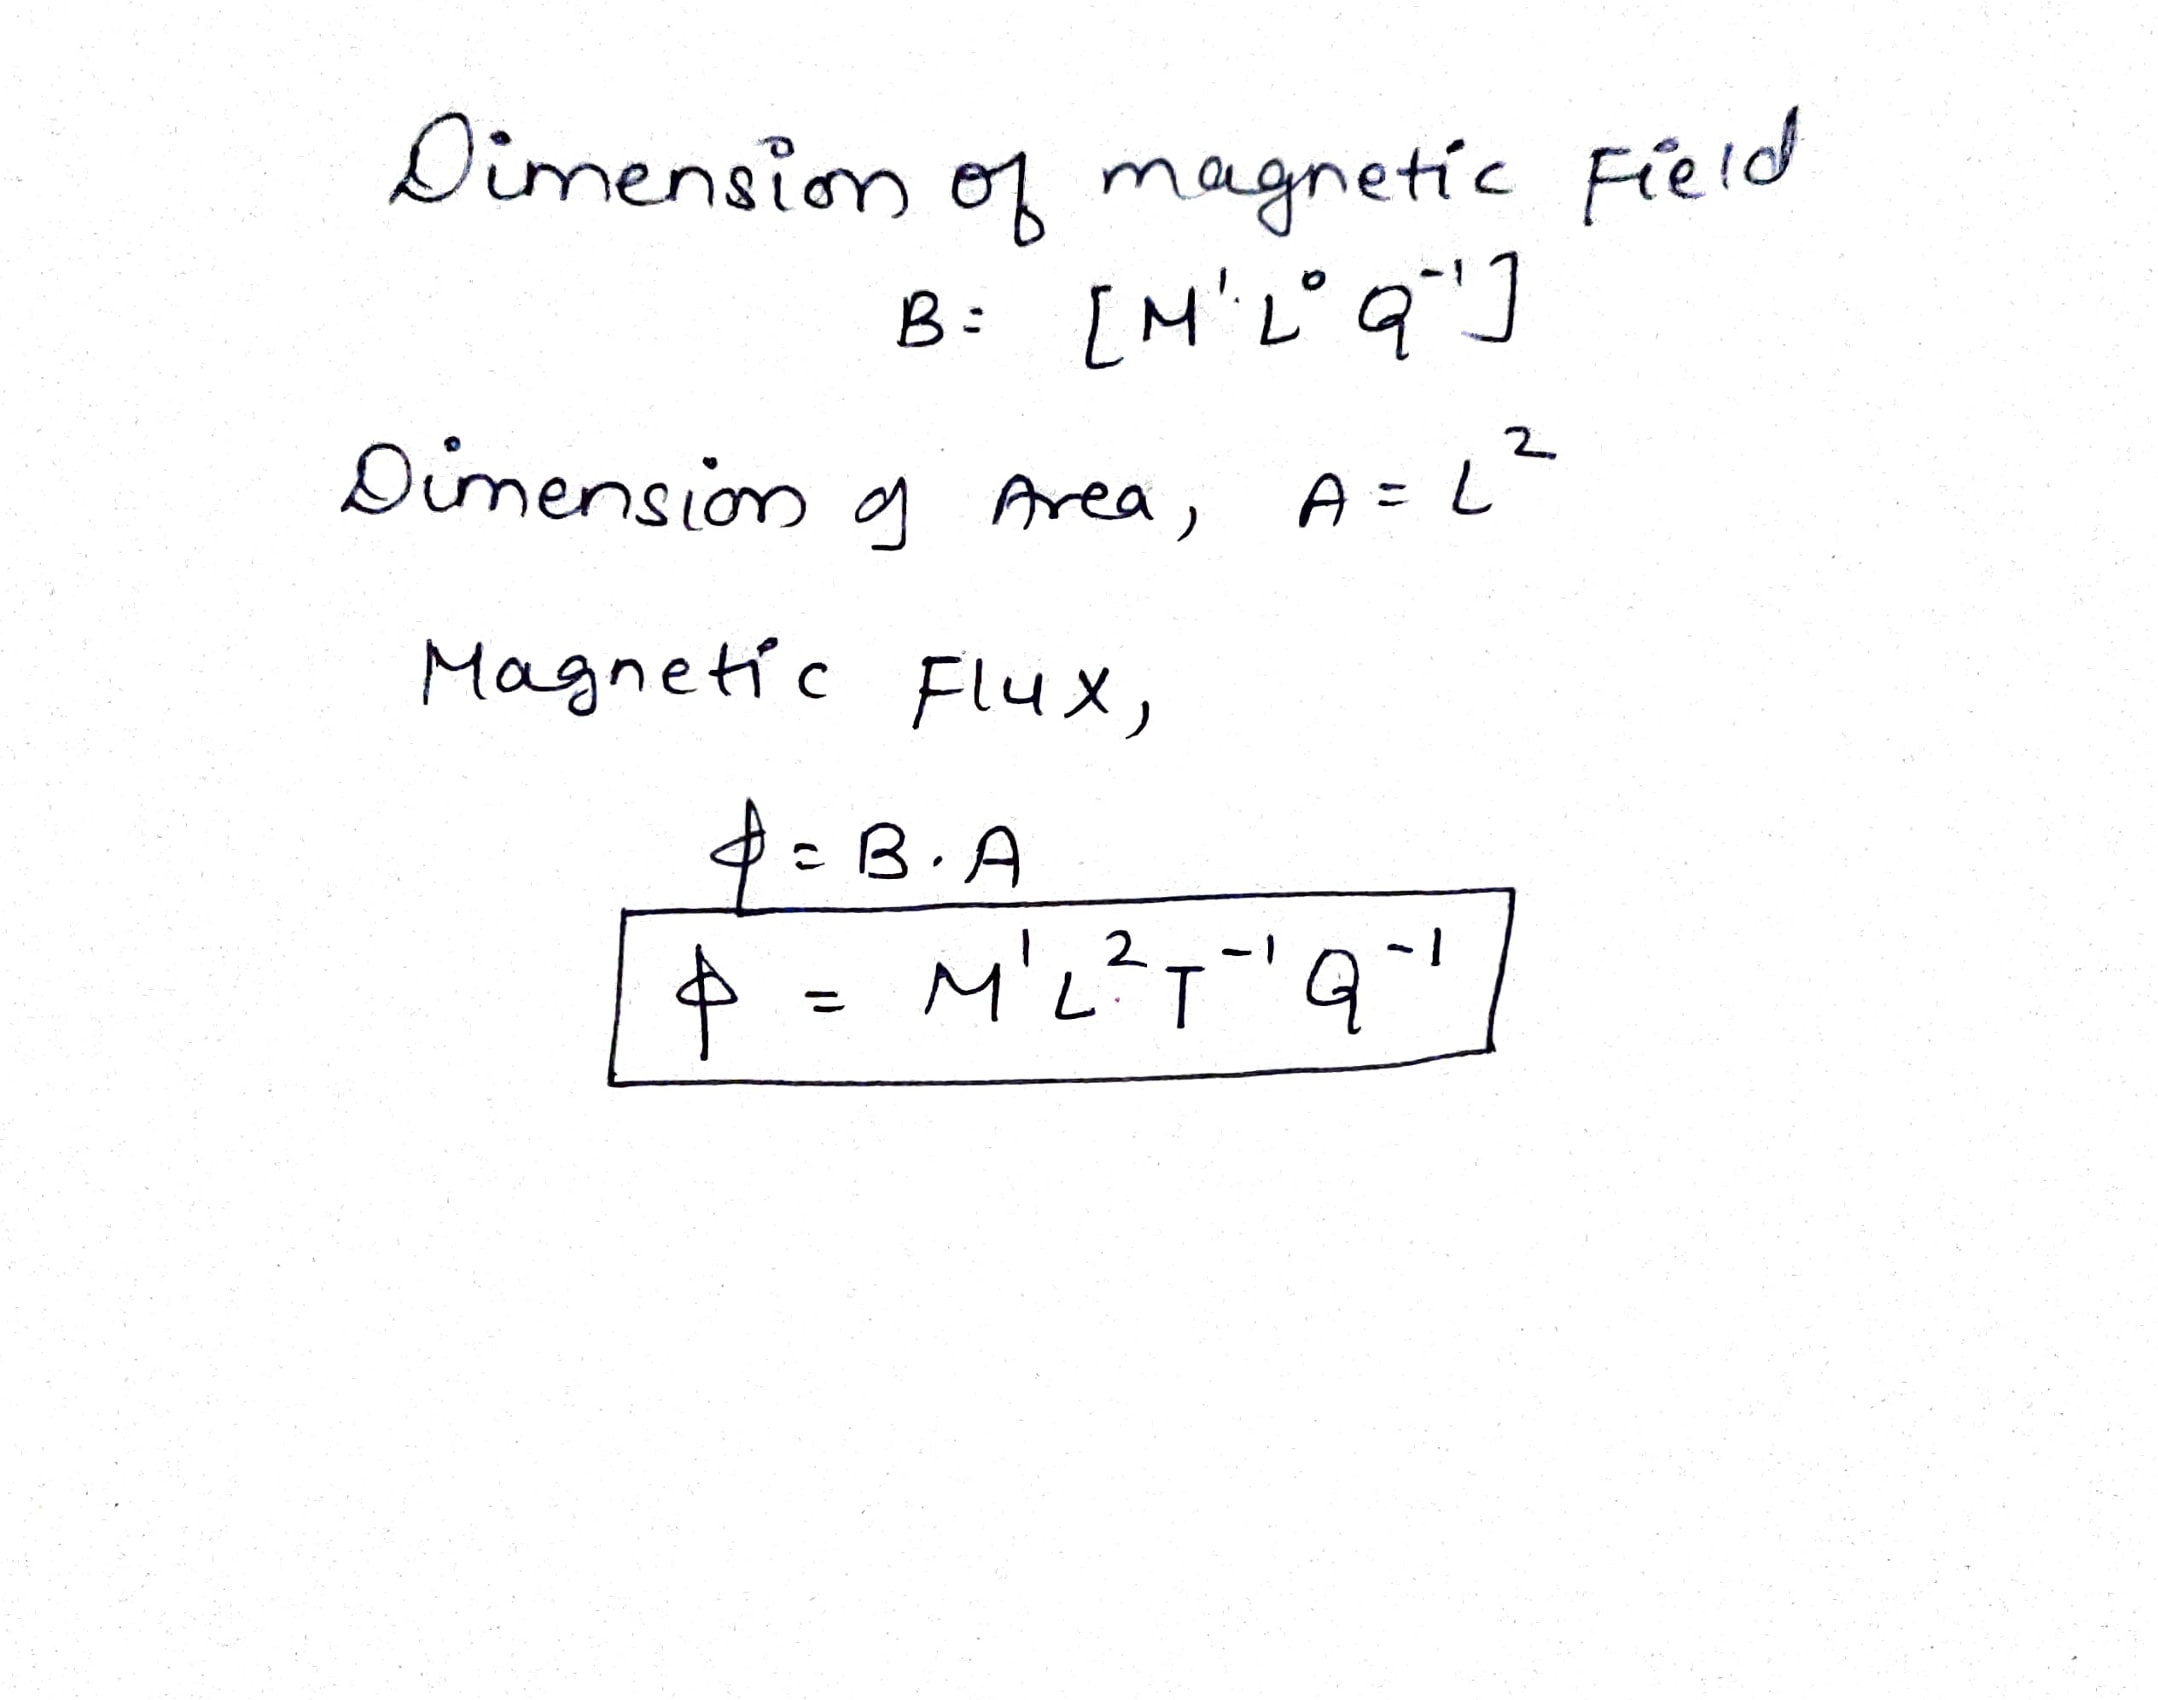 Dimension of magnetic Field
B= [M¹L⁰Q⁻¹]
Dimension of Area, A=L²
Magnetic Flux,
ϕ=B.A
ϕ = M¹L²T⁻¹Q⁻¹